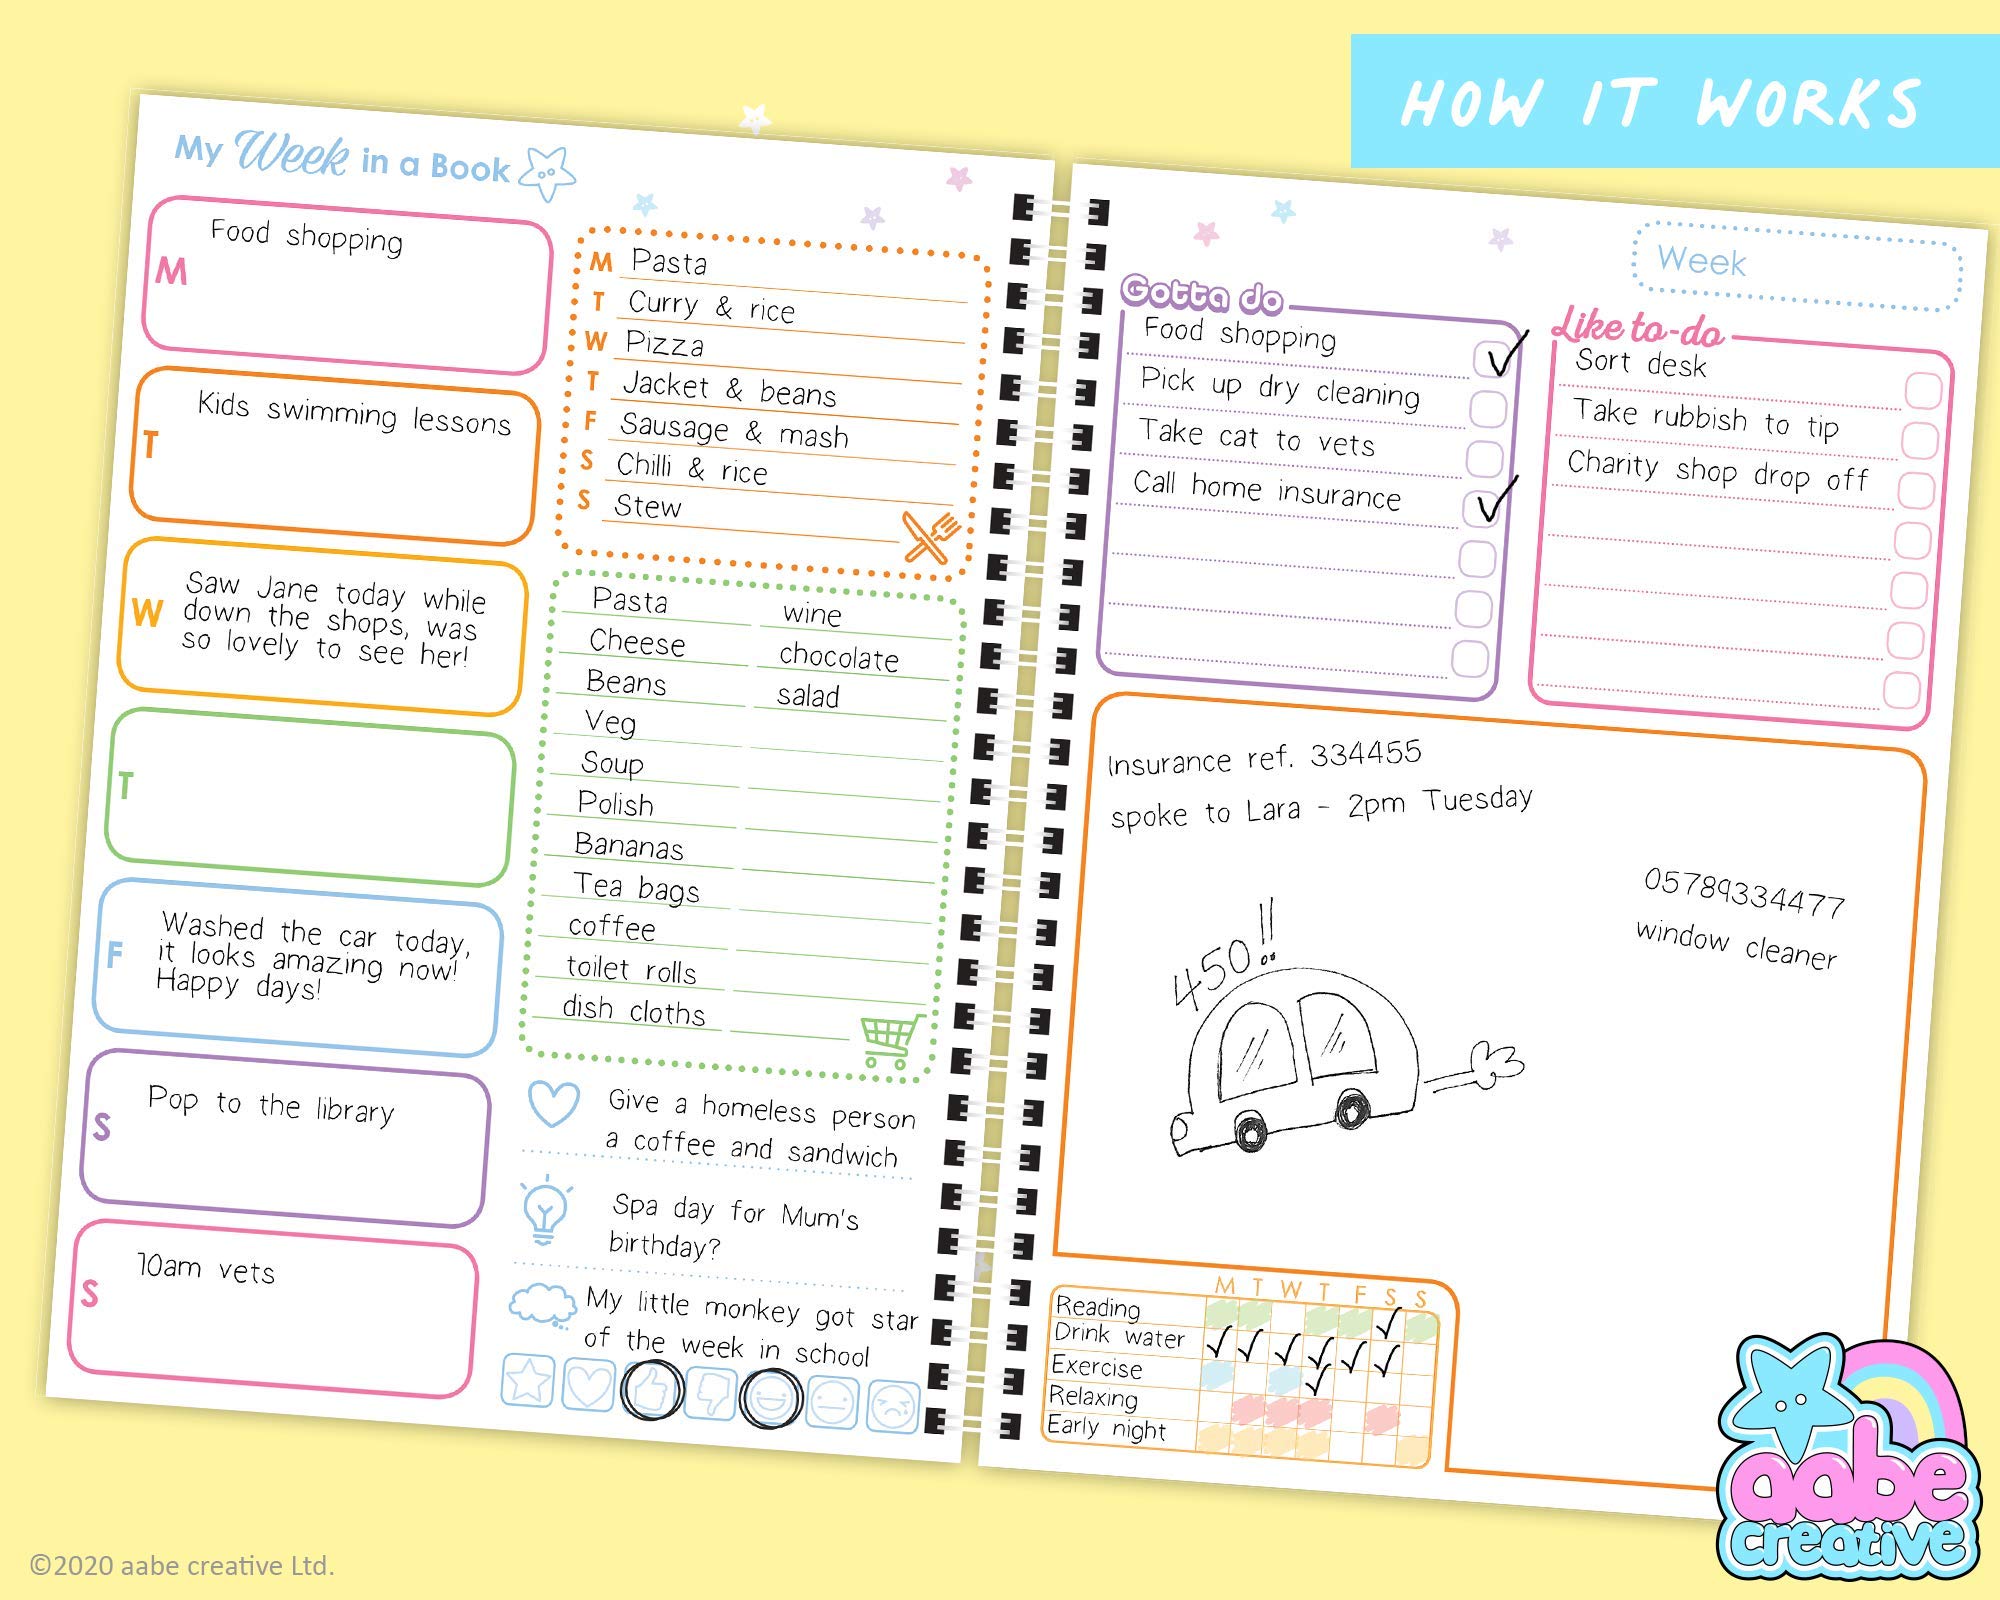 HOW IT WORKS
My Week in a Book
M
Food shopping
T
Kids swimming lessons
W
Saw Jane today while
down the shops, was
so lovely to see her!
T
F
Washed the car today,
it looks amazing now!
Happy days!
S
Pop to the library
S
10am vets
M Pasta
T Curry & rice
W Pizza
T Jacket & beans
F Sausage & mash
S Chilli & rice
S Stew
Pasta wine
Cheese chocolate
Beans salad
Veg
Soup
Polish
Bananas
Tea bags
coffee
toilet rolls
dish cloths
Give a homeless person
a coffee and sandwich
Spa day for Mum's
birthday?
My little monkey got star
of the week in school
Week
Gotta do
Food shopping
Pick up dry cleaning
Take cat to vets
Call home insurance
Like to-do
Sort desk
Take rubbish to tip
Charity shop drop off
Insurance ref. 334455
spoke to Lara - 2pm Tuesday
05789334477
window cleaner
450!!
M T W T F S S
Reading
Drink water
Exercise
Relaxing
Early night
aabe
creative
©2020 aabe creative Ltd.